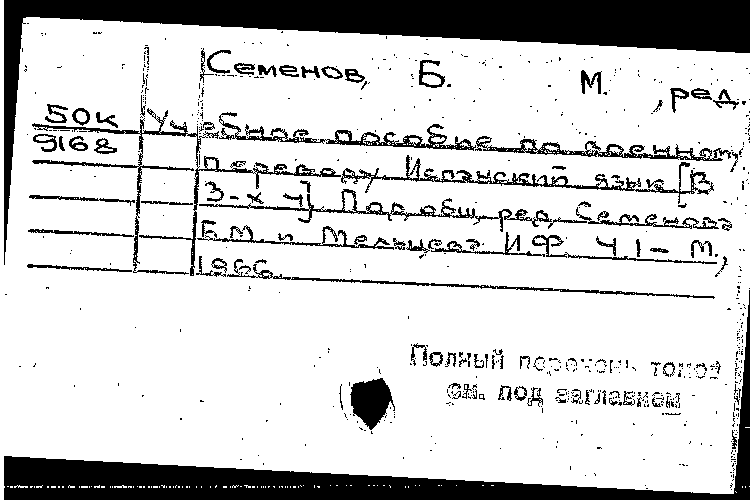 Семенов, Б. М., ред.
50к Учебное пособие по военному
9168 переводу. Испанский язык [В
3-х ч]. Под общ. ред. Семенова
Б.М. и Мельцева И.Ф. Ч.1 - М.,
1966.
Полный перечень томов
см. под заглавием